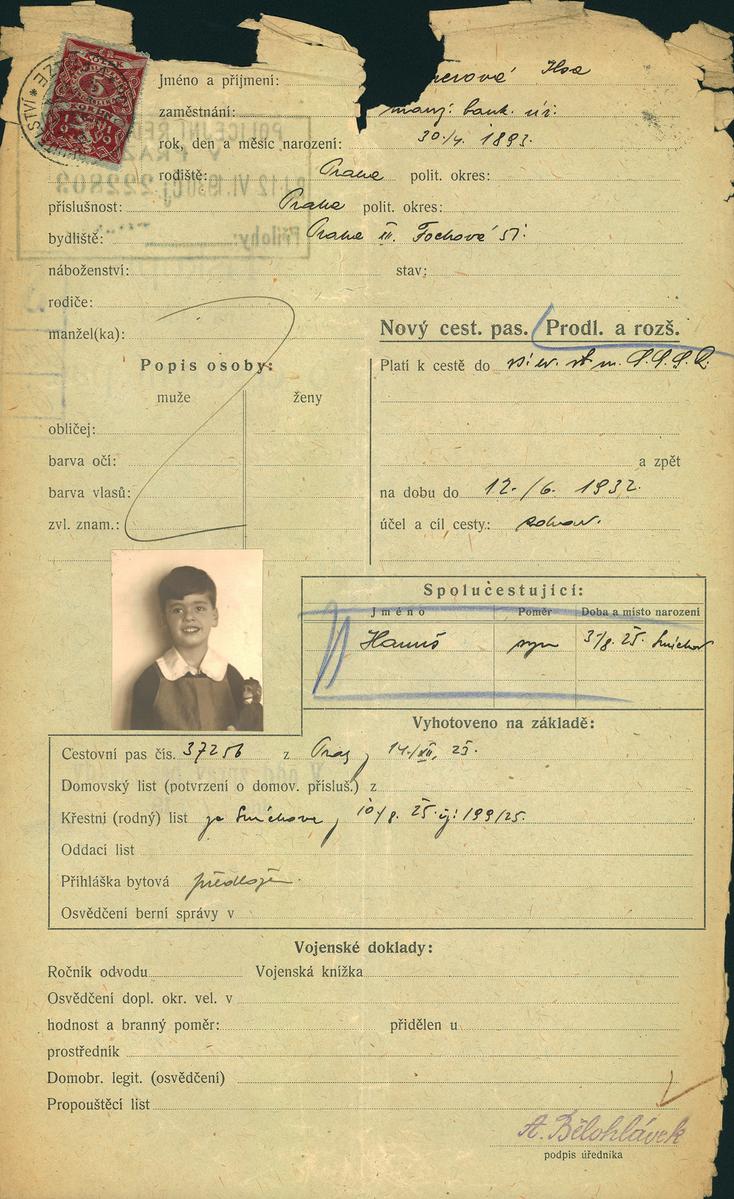 Jméno a příjmení: nerová Ilsa
zaměstnání: manž. bank. úř.
rok, den a měsíc narození: 30./4. 1893.
rodiště: Praha polit. okres:
příslušnost: Praha polit. okres:
bydliště: Praha XII. Fochova 51.
náboženství: stav:
rodiče:
manžel(ka):
Nový cest. pas. Prodl. a rozš.
Popis osoby:
muže ženy
obličej:
barva očí:
barva vlasů:
zvl. znam.:
Platí k cestě do S.S.S.R.
a zpět
na dobu do 12./6. 1932.
účel a cíl cesty: zdrav.
Spolucestující:
Jméno Poměr Doba a místo narození
Hanuš syn 3/8. 25. Smíchov
Vyhotoveno na základě:
Cestovní pas čís. 37256 z Prahy
Domovský list (potvrzení o domov. přísluš.) z
Křestní (rodný) list ze Smíchova, 10/8. 25. čj: 199/25.
Oddací list
Přihláška bytová předložen.
Osvědčení berní správy v
Vojenské doklady:
Ročník odvodu Vojenská knížka
Osvědčení dopl. okr. vel. v
hodnost a branný poměr: přidělen u
prostředník
Domobr. legit. (osvědčení)
Propouštěcí list
A. Bělohlávek
podpis úředníka